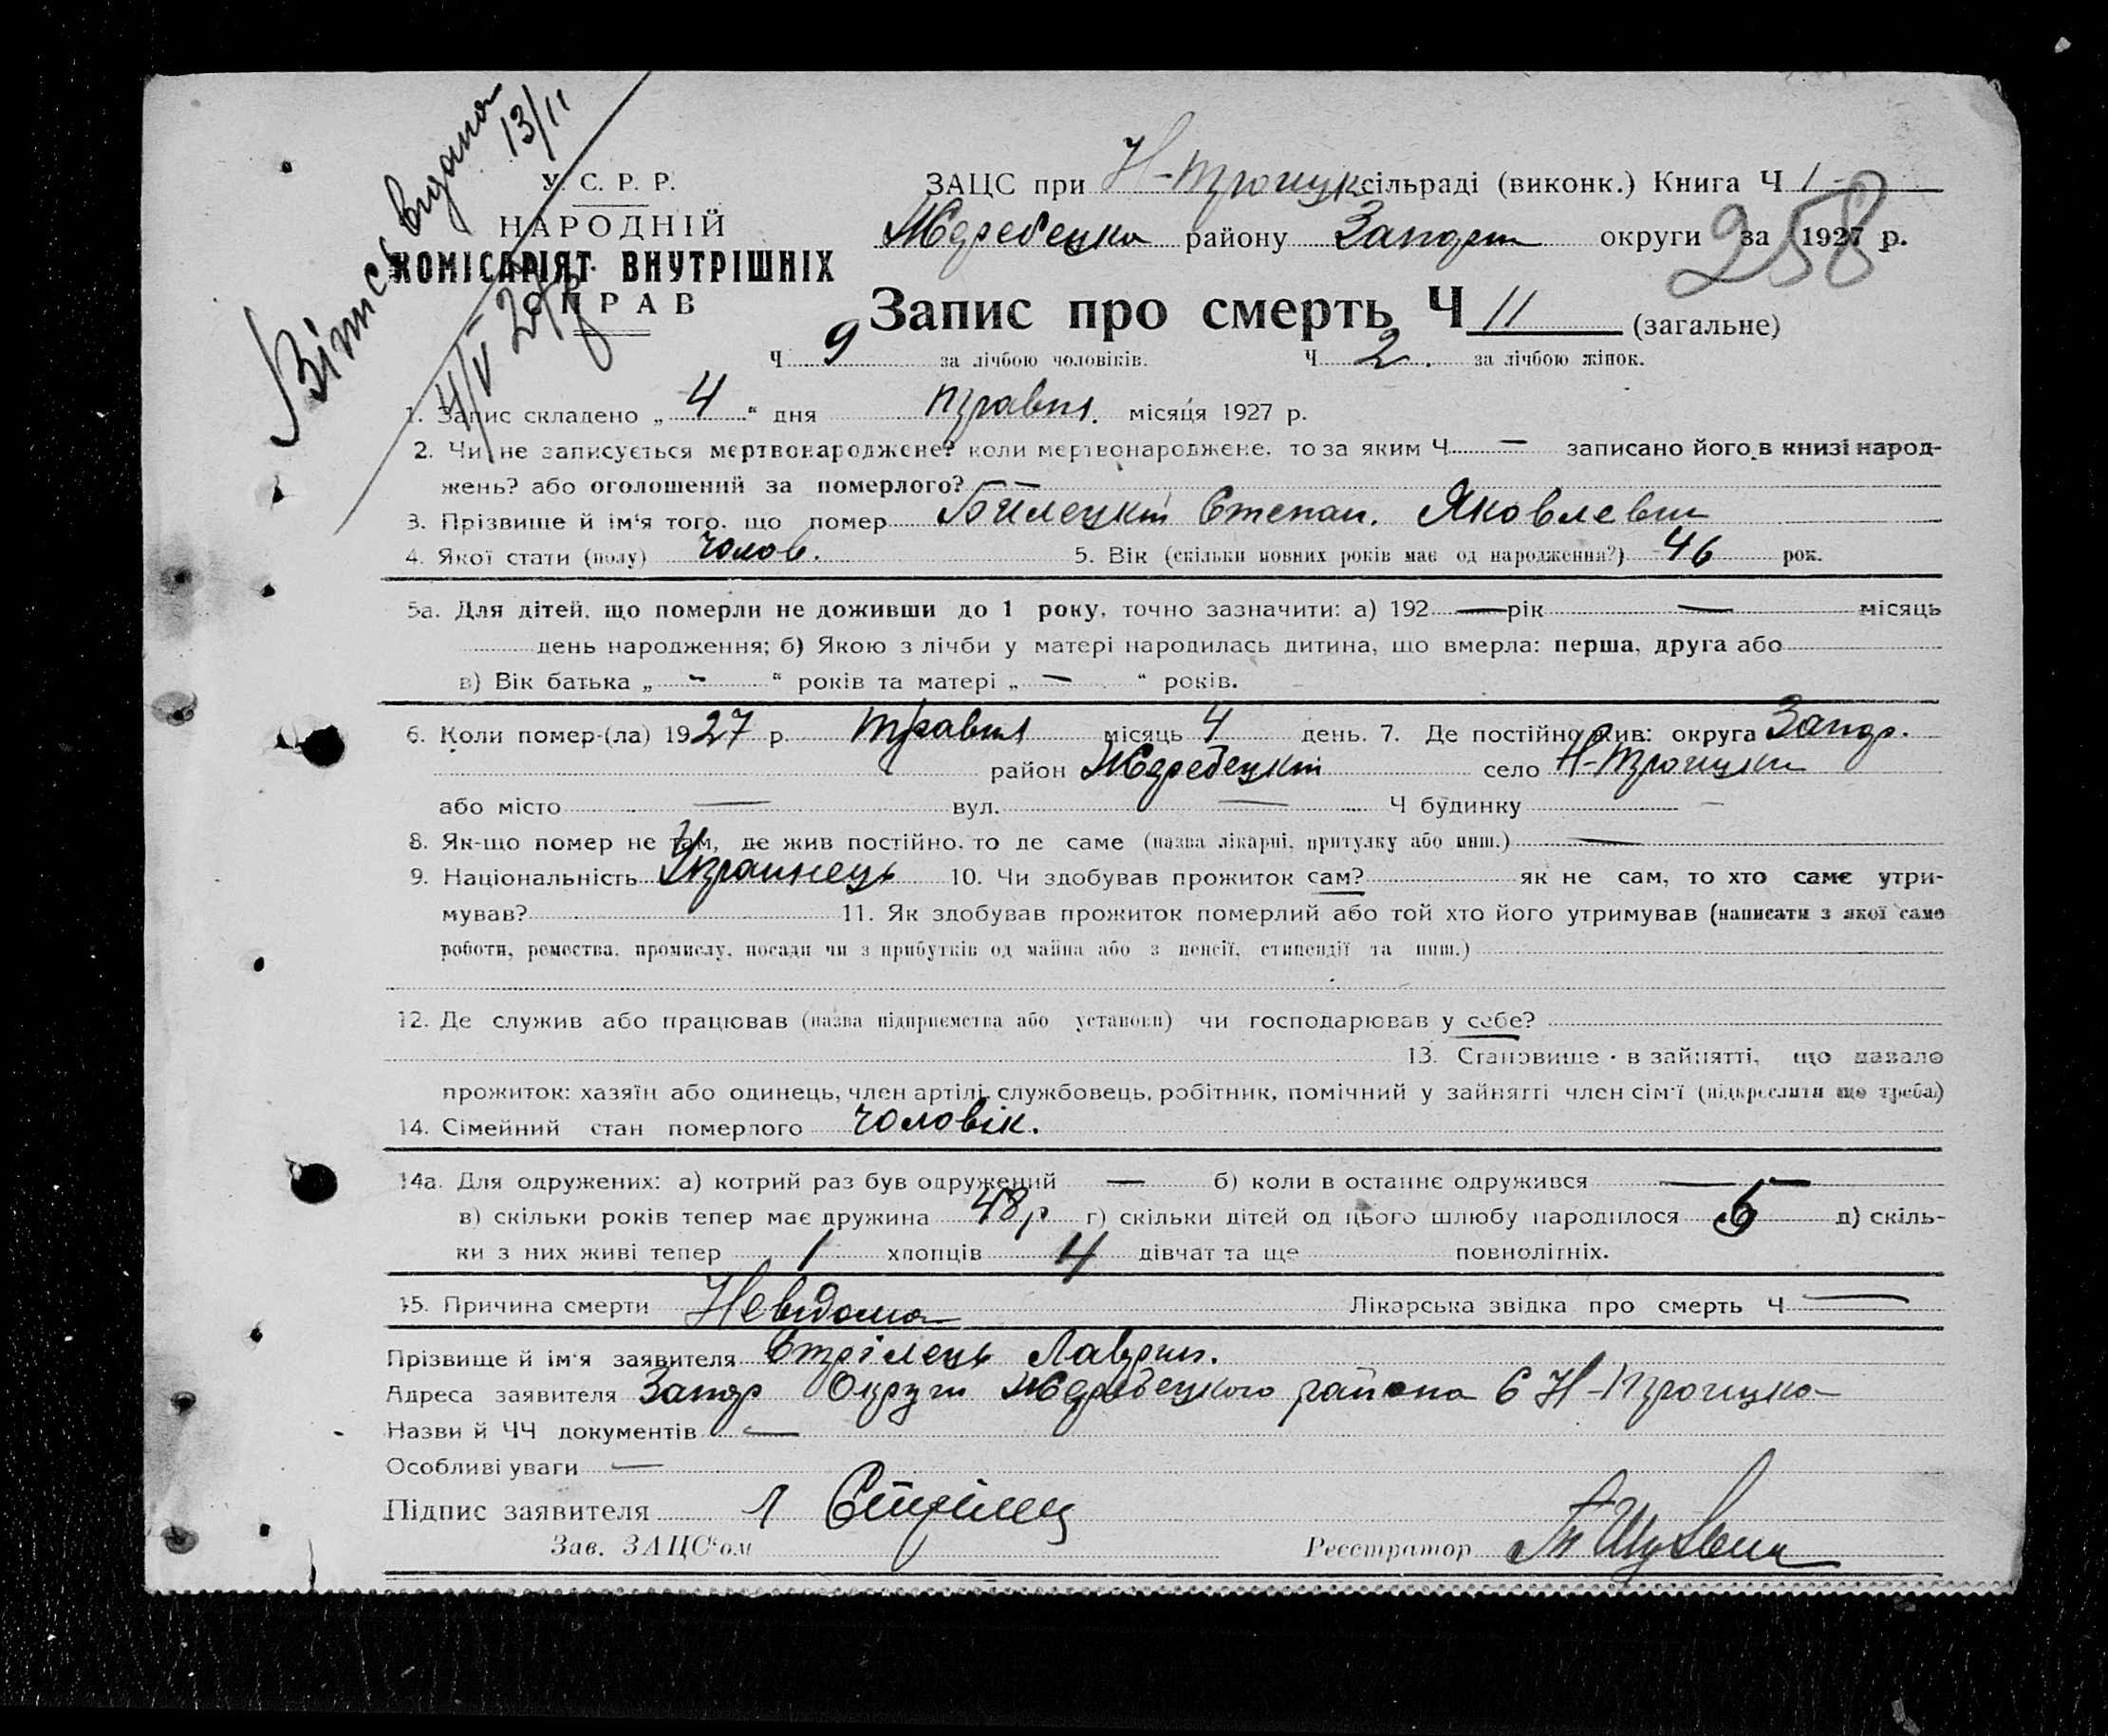 Витяг видано 13/11
4/V 27 р
У. С. Р. Р.
НАРОДНІЙ
КОМІСАРІЯТ ВНУТРІШНІХ
СПРАВ
ЗАЦС при Н-Троицк сільраді (виконк.) Книга Ч 1-
Жеребецко району Запорж округи за 1927 р.
258
Запис про смерть Ч 11 (загальне)
Ч 9 за лічбою чоловіків. Ч 2. за лічбою жінок.
1. Запис складено „ 4 “ дня травня. місяця 1927 р.
2. Чи не записується мертвонароджене? коли мертвонароджене, то за яким Ч — записано його в книзі народ-
жень? або оголошений за померлого? — —
3. Прізвище й ім'я того, що помер Білецкий Степан. Яковлевич
4. Якої стати (полу) чолов. 5. Вік (скільки повних років має од народження?) 46 рок.
5а. Для дітей, що померли не доживши до 1 року, точно зазначити: а) 192 — рік — місяць
день народження; б) Якою з лічби у матері народилась дитина, що вмерла: перша, друга або
в) Вік батька „ - “ років та матері „ — “ років.
6. Коли помер-(ла) 1927 р. травня місяць 4 день. 7. Де постійно жив: округа Запор.
район Жеребецкий село Н-Троицки
або місто — вул. — Ч будинку —
8. Як-що помер не там, де жив постійно, то де саме (назва лікарні, притулку або инш.) —
9. Національність Украинець 10. Чи здобував прожиток сам? як не сам, то хто саме утри-
мував? 11. Як здобував прожиток померлий або той хто його утримував (написати з якої саме
роботи, ремества, промислу, посади чи з прибутків од майна або з пенсії, стипендії та инш.)
12. Де служив або працював (назва підприємства або установи) чи господарював у себе?
13. Становище в зайнятті, що давало
прожиток: хазяїн або одинець, член артілі, службовець, робітник, помічний у зайнятті член сім'ї (підкреслити що треба)
14. Сімейний стан померлого чоловік.
14а. Для одружених: а) котрий раз був одружений — б) коли в останнє одружився —
в) скільки років тепер має дружина 48 р г) скільки дітей од цього шлюбу народилося 5 д) скіль-
ки з них живі тепер 1 хлопців 4 дівчат та ще повнолітніх.
15. Причина смерти Невідома Лікарська звідка про смерть Ч —
Прізвище й ім'я заявителя Стрілець Лаврин.
Адреса заявителя Запор Округи Жеребецкого района С Н-Троицко-
Назви й ЧЧ документів —
Особливі уваги —
Підпис заявителя Л Стрілец
Зав. ЗАЦС'ом Реєстратор